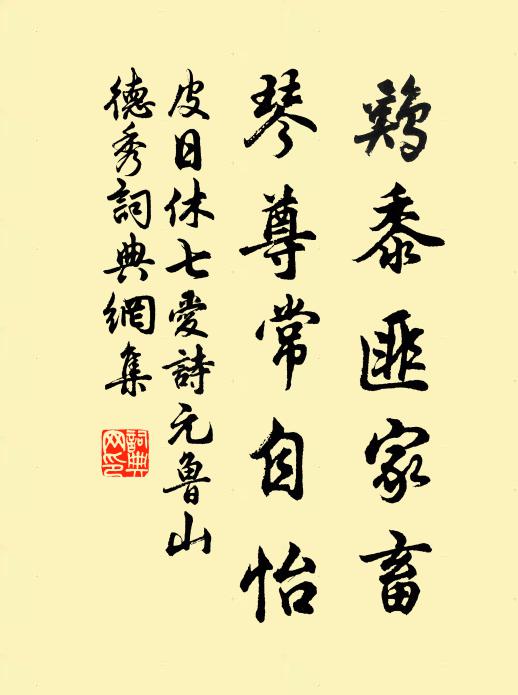 鷄黍匪家畜
琴尊常自怡
皮日休七愛詩元魯山
德秀詞典網集
詞典网印